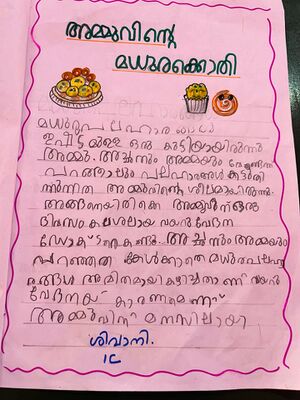 അമ്മുവിന്റെ
മധുരക്കൊതി
മധുരപലഹാരങ്ങൾ
ഒരു കുട്ടിയായിരുന്നു
അമ്മു. അച്ഛനും അമ്മയും
പറഞ്ഞാലും പലഹാരങ്ങൾ
തിന്നുന്നത് അമ്മുവിന്റെ ശീലമായിരുന്നു.
അങ്ങനെയിരിക്കെ അമ്മുവിന് ഒരു
ദിവസം കലശലായ വയറുവേദന
അച്ഛനും അമ്മയും
പറഞ്ഞത് കേൾക്കാതെ മധുരപലഹാ
രങ്ങൾ അമിതമായി കഴിച്ചതാണ് വയറു
വേദനയ്ക്ക് കാരണമെന്ന്
അമ്മുവിന് മനസിലായി
ശിവാനി.
1C